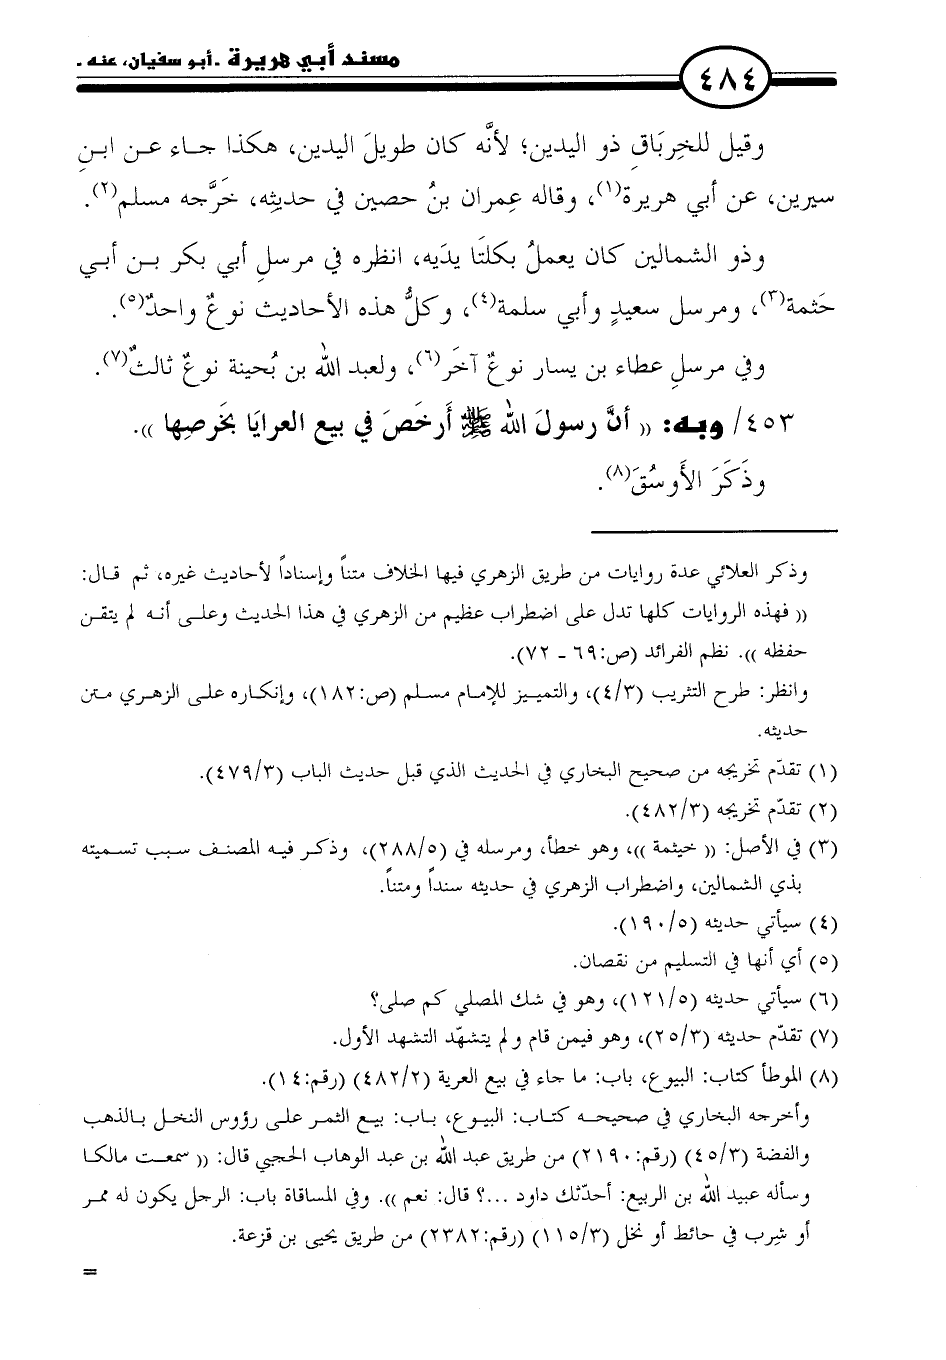 ٤٨٤ مسند أبي هريرة ـ أبو سفيان، عنه ـ
وقيل للخِربَاقِ ذو اليدين؛ لأنَّه كان طويلَ اليدين، هكذا جاء عن ابنِ
سيرين، عن أبي هريرة(١)، وقاله عِمران بنُ حصين في حديثِه، خَرَّجه مسلم(٢).
وذو الشمالين كان يعملُ بكلتَا يدَيه، انظره في مرسلِ أبي بكر بن أبي
حَثمة(٣)، ومرسل سعيدٍ وأبي سلمة(٤)، وكلُّ هذه الأحاديث نوعٌ واحدٌ(٥).
وفي مرسلِ عطاء بن يسار نوعٌ آخَر(٦)، ولعبد الله بن بُحينة نوعٌ ثالثٌ(٧).
٤٥٣/ وبه: (( أنَّ رسولَ الله ﷺ أَرخَصَ في بيع العرايَا بخَرصِها )).
وذَكَرَ الأَوسُقَ(٨).
وذكر العلائي عدة روايات من طريق الزهري فيها الخلاف متناً وإسناداً لأحاديث غيره، ثم قال:
(( فهذه الروايات كلها تدل على اضطراب عظيم من الزهري في هذا الحديث وعلى أنه لم يتقن
حفظه )). نظم الفرائد (ص:٦٩ ـ ٧٢).
وانظر: طرح التثريب (٤/٣)، والتمييز للإمام مسلم (ص:١٨٢)، وإنكاره على الزهري متن
حديثه.
(١) تقدّم تخريجه من صحيح البخاري في الحديث الذي قبل حديث الباب (٤٧٩/٣).
(٢) تقدّم تخريجه (٤٨٢/٣).
(٣) في الأصل: (( خيثمة ))، وهو خطأ، ومرسله في (٢٨٨/٥)، وذكر فيه المصنف سبب تسميته
بذي الشمالين، واضطراب الزهري في حديثه سنداً ومتناً.
(٤) سيأتي حديثه (١٩٠/٥).
(٥) أي أنها في التسليم من نقصان.
(٦) سيأتي حديثه (١٢١/٥)، وهو في شك المصلي كم صلى؟
(٧) تقدّم حديثه (٢٥/٣)، وهو فيمن قام ولم يتشهّد التشهد الأول.
(٨) الموطأ كتاب: البيوع، باب: ما جاء في بيع العرية (٤٨٢/٢) (رقم:١٤).
وأخرجه البخاري في صحيحه كتاب: البيوع، باب: بيع الثمر على رؤوس النخل بالذهب
والفضة (٤٥/٣) (رقم:٢١٩٠) من طريق عبد الله بن عبد الوهاب الحجبي قال: (( سمعت مالكا
وسأله عبيد الله بن الربيع: أحدّثك داود ...؟ قال: نعم )). وفي المساقاة باب: الرجل يكون له ممر
أو شِرب في حائط أو نخل (١١٥/٣) (رقم:٢٣٨٢) من طريق يحيى بن قزعة.
=